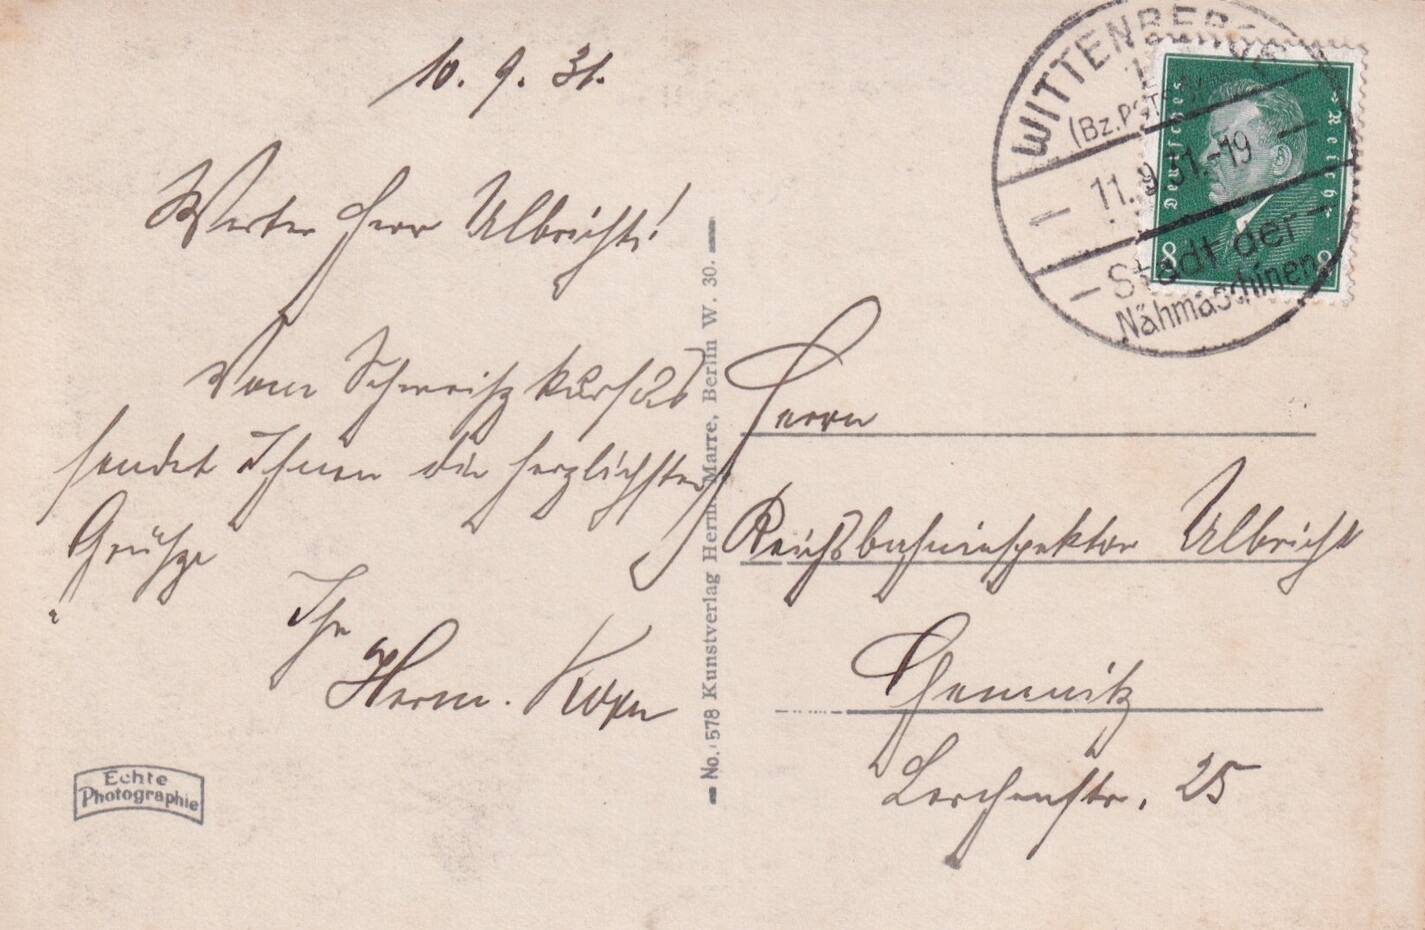 10. 9. 31.
Werter Herr Ulbricht!
Vom Schweißkursus
sendet Ihnen die herzlichsten
Grüße
Ihr
Herm.
Echte
Photographie
No. 578 Kunstverlag Herm. Marre, Berlin W. 30.
WITTENBERGE
(Bz. POTSDAM)
11.9.31.-19
Stadt der
Nähmaschinen
Deutsches Reich
8 8
Herrn
Reichsbahninspektor Ulbricht
Chemnitz
Lerchenstr. 25